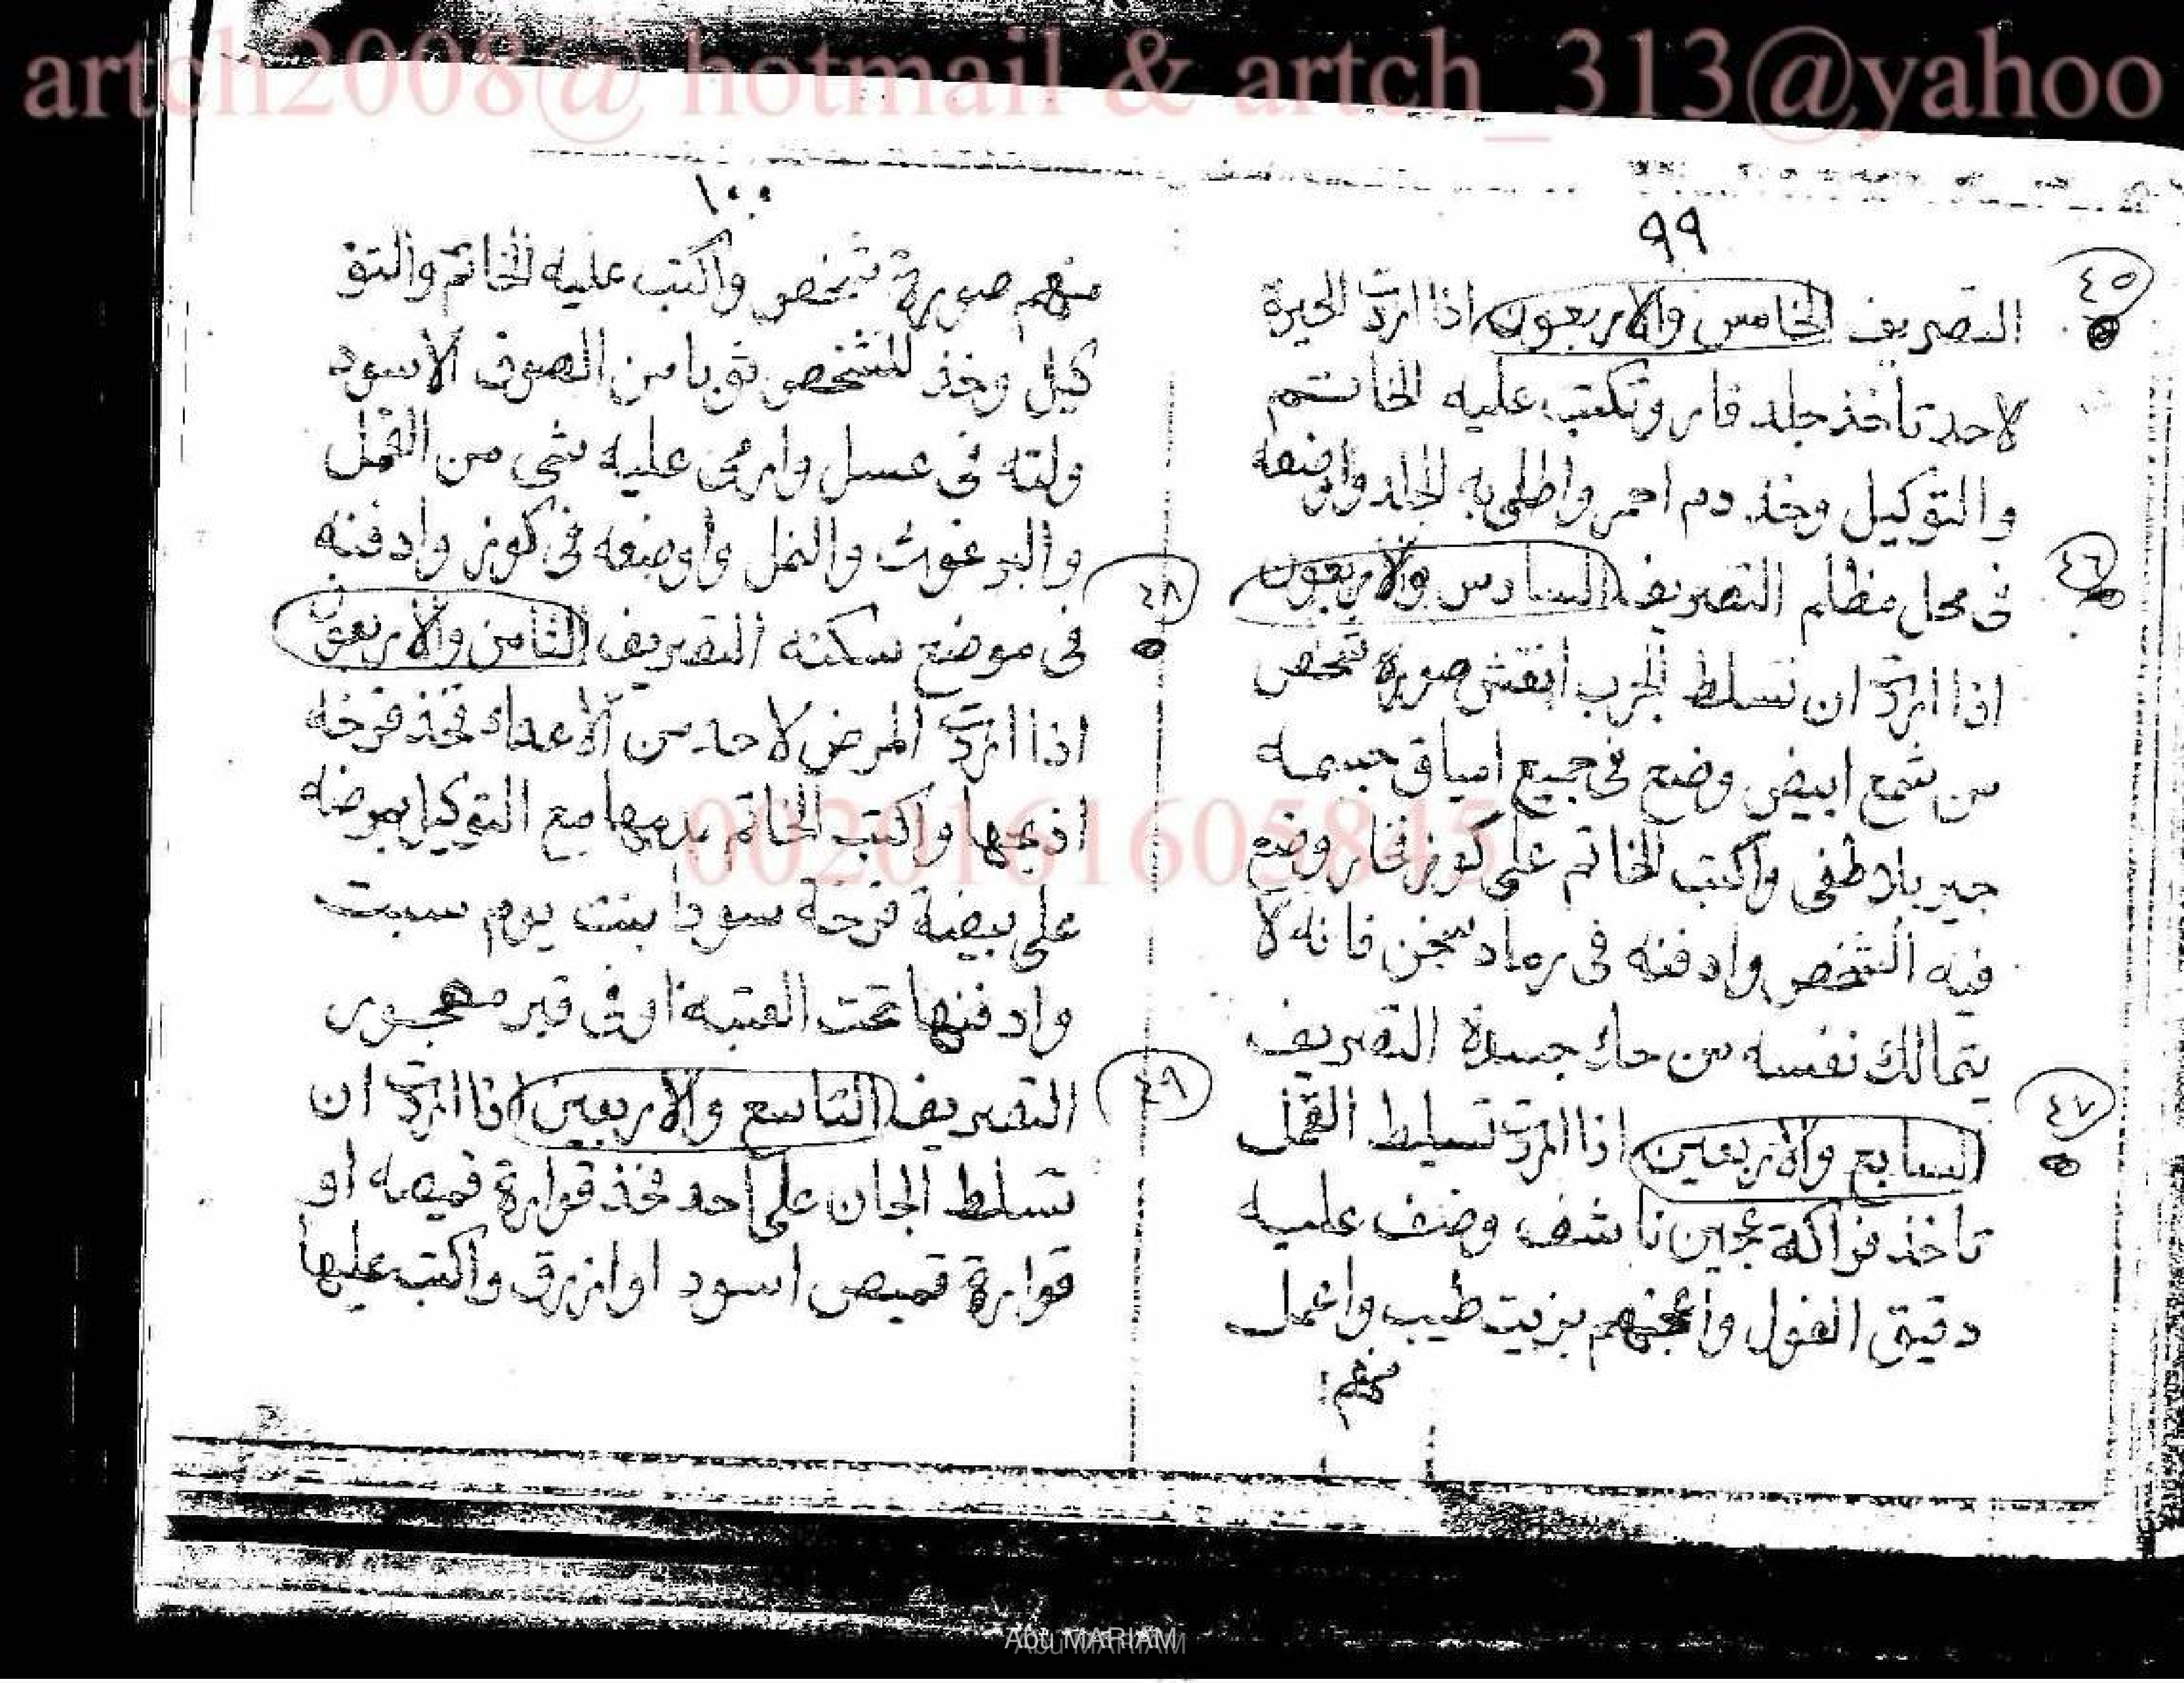 artch2008@ hotmail & artch_313@yahoo
٩٩
٤٥
التصريف الخامس والاربعون اذا اردت الحيرة
لاحد تأخذ جلد فار وتكتب عليه الخاتم
والتوكيل وخذ دم احمر واطلى به الجلد واوضعه
٤٦
فى محل مظلم التصريف السادس والاربعون
اذا اردت ان تسلط الجرب انقش صورة شخص
من شمع ابيض وضع فى جميع جسمه
جير بلا طفى واكتب الخاتم على كوز فخار وضع
فيه الشخص وادفنه فى رماد سخن فانه لا
يتمالك نفسه من حك جسده التصريف
٤٧
السابع والاربعين اذا اردت تسليط القمل
تاخذ فراكة عجين ناشف وضف عليه
دقيق الفول واعجنهم بزيت طيب واعمل
منهم
١٠٠
منهم صورة شخص واكتب عليه الخاتم والتو
كيل وخذ للشخص ثوبا من الصوف الاسود
ولته فى عسل وارمى عليه شى من القمل
والبرغوث والنمل واوضعه فى كوز وادفنه
٤٨
فى موضع سكنه التصريف الثامن والاربعون
اذا اردت المرض لاحد من الاعداء فخذ فرخة
اذبحها واكتب الخاتم بدمها مع التوكيل بمرضه
على بيضة فرخة سودا بنت يوم سبت
وادفنها تحت العتبة اوفى قبر مهجور
٤٩
التصريف التاسع والاربعين اذا اردت ان
تسلط الجان على احد فخذ قوارة قميصه او
قوارة قميص اسود او ازرق واكتب عليها
Abu MARIAM